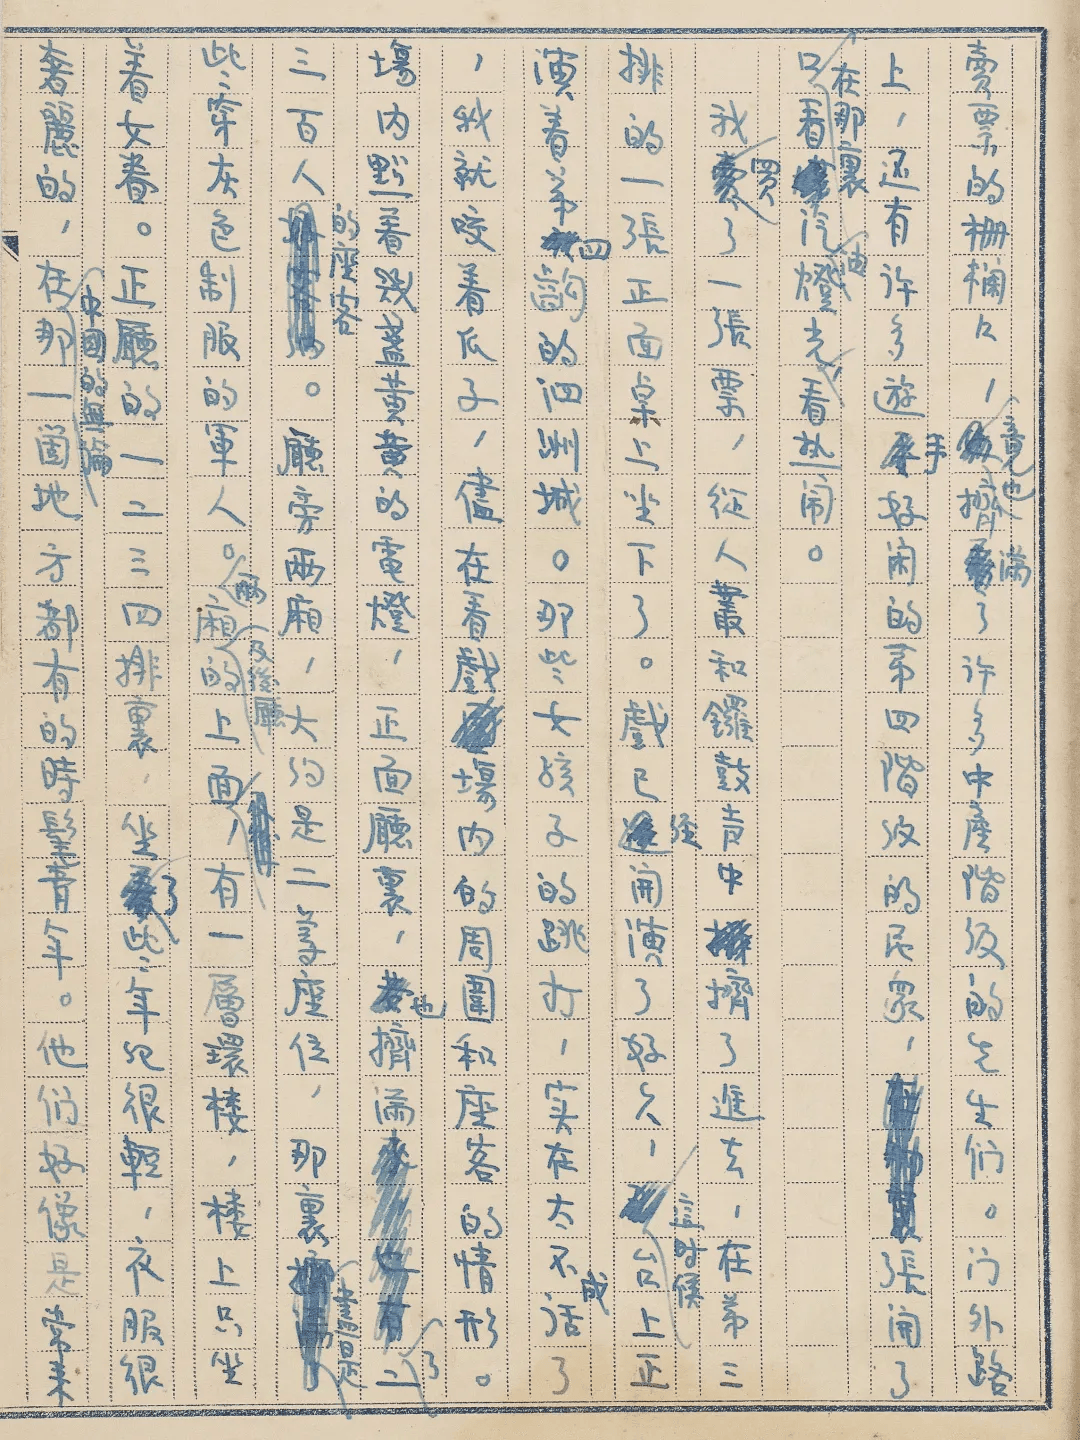 賣票的柵欄上，竟也擠滿了許多中產階級的先生們。门外路
上，还有许多遊手好闲的第四階級的民衆，張開了
口在那裏看汽油燈光看热闹。
我買了一張票，從人叢和鑼鼓声中擠了進去，在第三
排的一張正面桌上坐下了。戲已經開演了好久，這时候台上正
演着第四齣的泗洲城。那些女孩子的跳打，实在太不成话了
，我就咬着瓜子，儘在看戲場内的周圍和座客的情形。
場内點着幾盞黄黄的電燈，正面廳裏，也擠满了二
三百人的座客。廳旁两廂，大约是二等座位，那裏盡是
些穿灰色制服的軍人。两廂及後廳的上面，有一層環楼，楼上只坐
着女眷。正廳的一二三四排裏，坐了些年紀很輕，衣服很
奢麗的，在中國的無論那一個地方都有的時髦青年。他們好像是常来